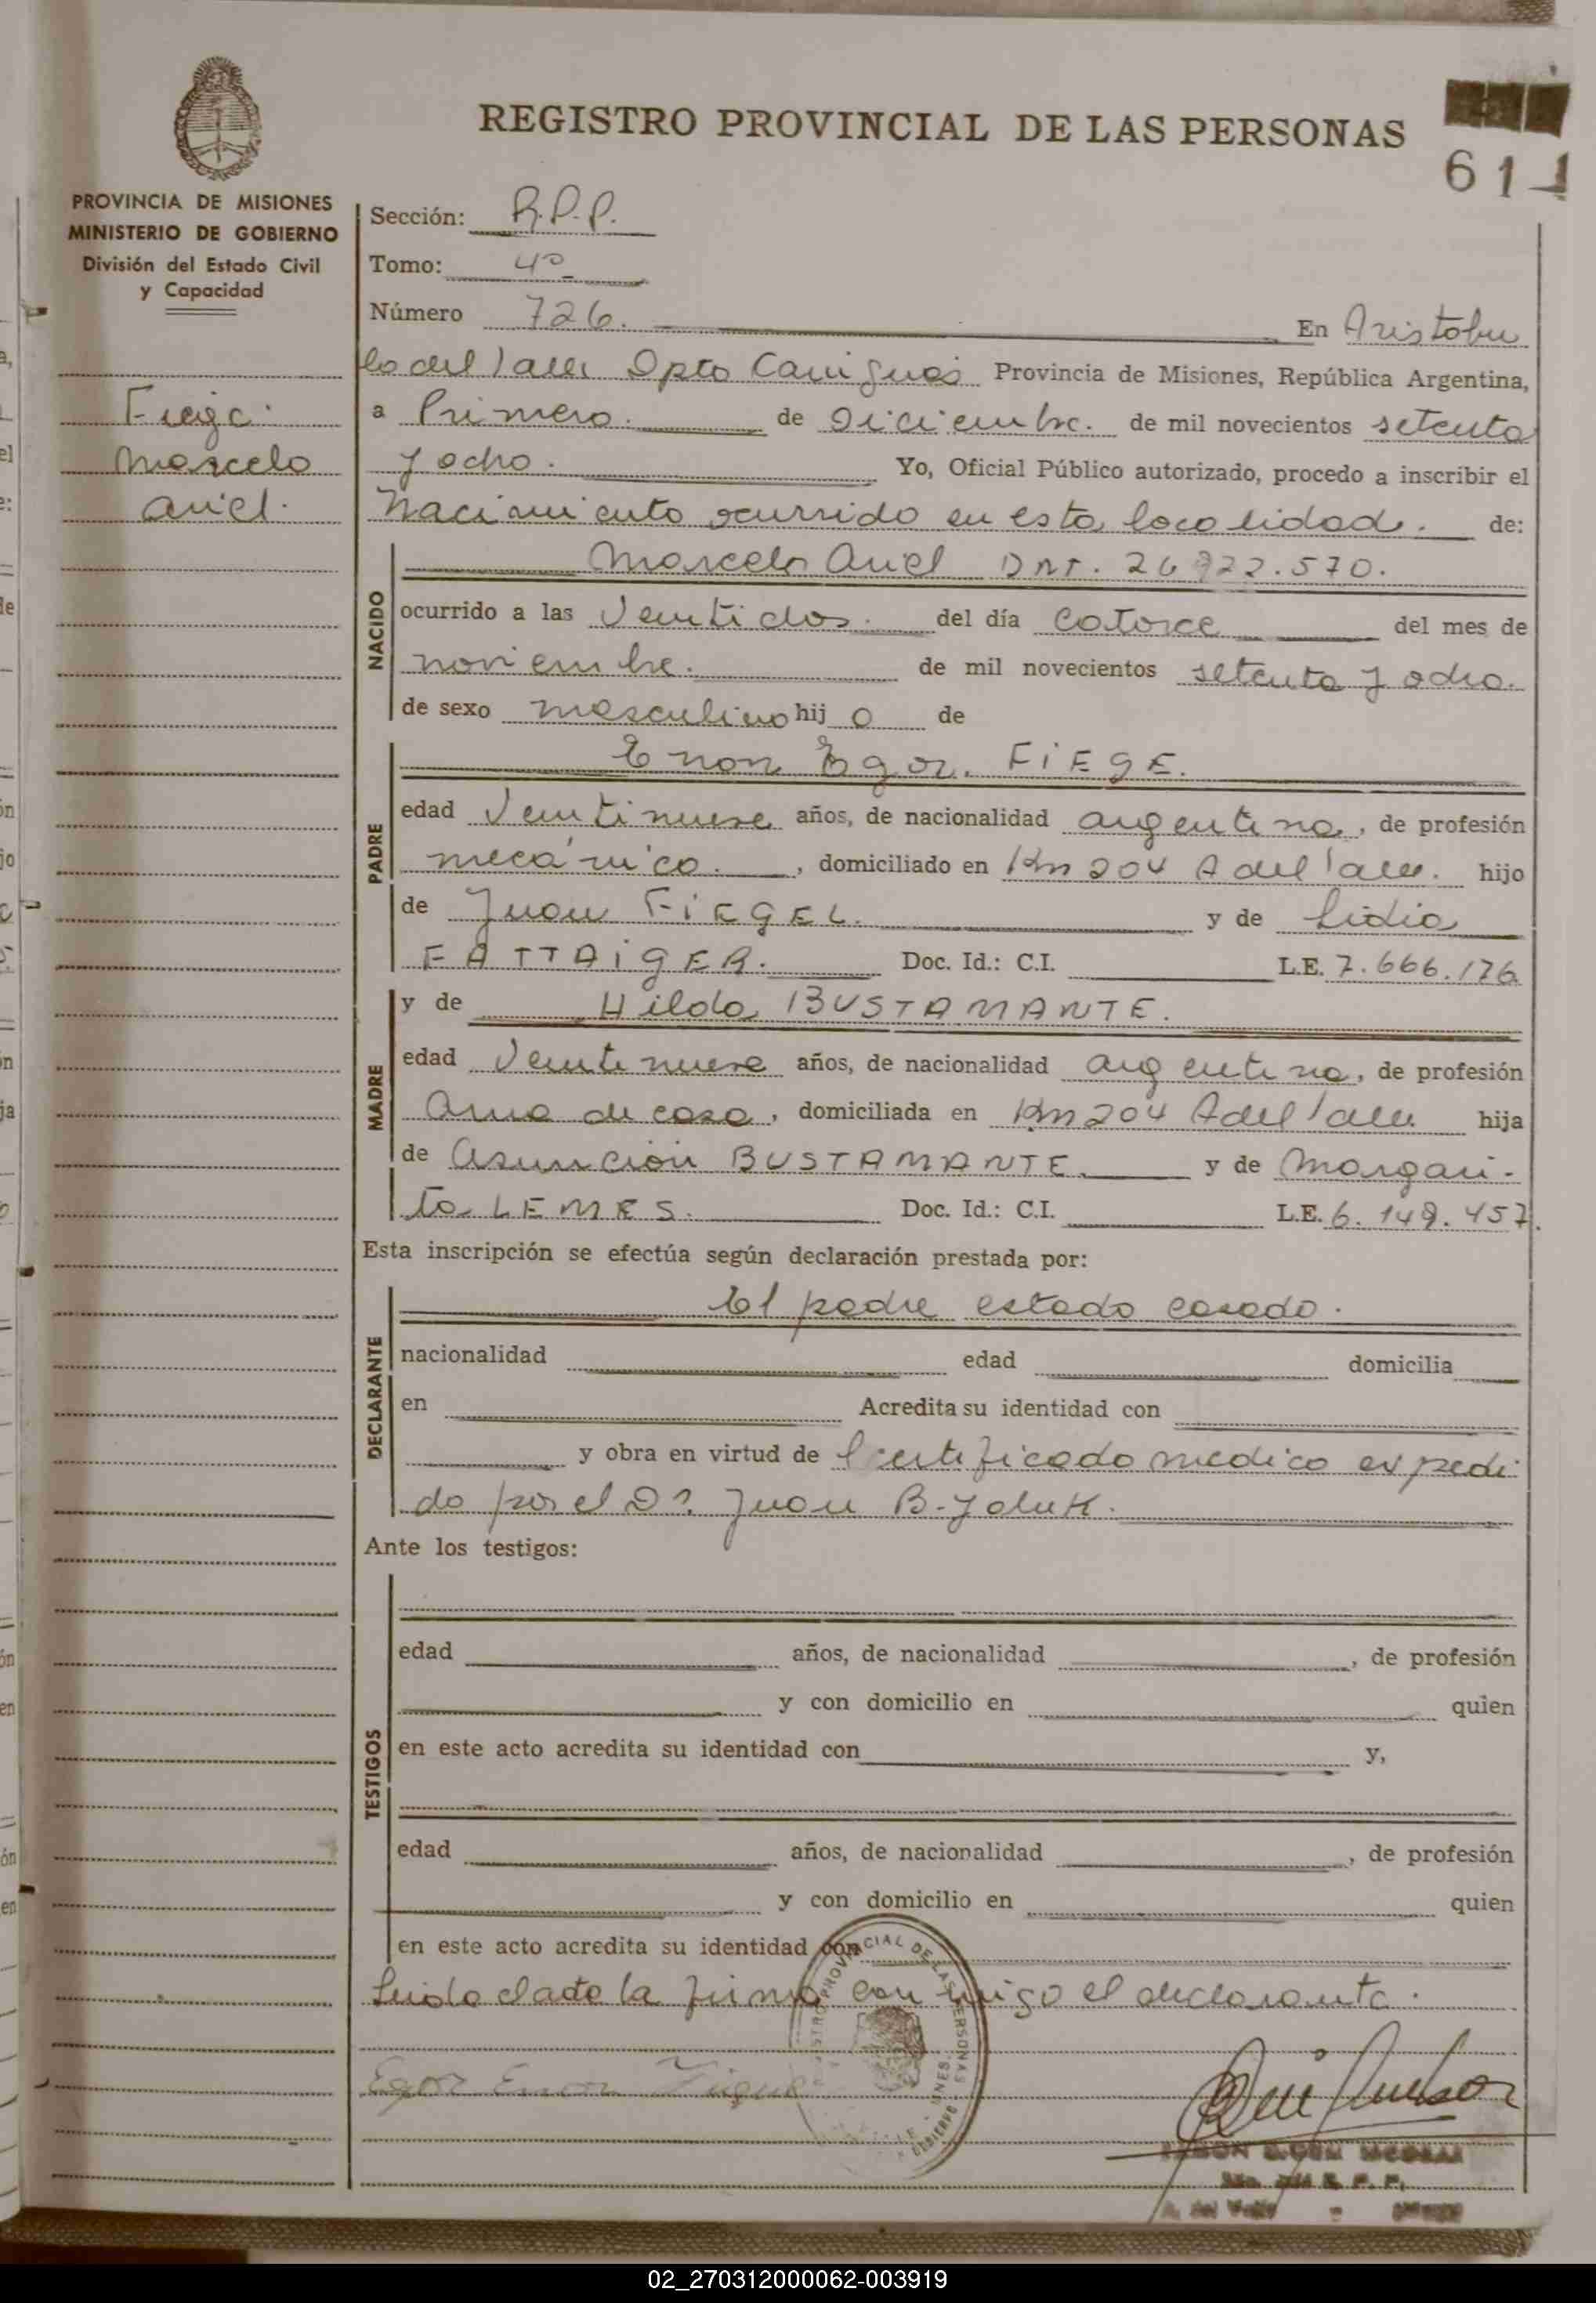 REGISTRO PROVINCIAL DE LAS PERSONAS
611
PROVINCIA DE MISIONES
MINISTERIO DE GOBIERNO
División del Estado Civil
y Capacidad
Marcelo
Ariel.
Sección: R.P.P.
Tomo: 4º
Número 726. En Aristobu
lo del Valle Dpto Cainguás Provincia de Misiones, República Argentina,
a Primero. de Diciembre. de mil novecientos setenta
y ocho. Yo, Oficial Público autorizado, procedo a inscribir el
Nacimiento ocurrido en esta localidad. de:
NACIDO
Marcelo Ariel DNI. 26.922.570.
ocurrido a las Veintidos. del día Catorce del mes de
noviembre. de mil novecientos setenta y ocho.
de sexo masculino hijo de
PADRE
Enon Egor. FIEGE.
edad Veintinueve años, de nacionalidad argentina, de profesión
mecánico. , domiciliado en Km 204 A del Valle. hijo
de Juan FIEGEL. y de Lidia
FATTAIGER. Doc. Id.: C.I. L.E. 7.666.176
MADRE
y de Hilda BUSTAMANTE.
edad Veintinueve años, de nacionalidad argentina, de profesión
Ama de casa, domiciliada en Km 204 A del Valle hija
de Asunción BUSTAMANTE. y de Margari-
ta LEMES. Doc. Id.: C.I. L.E. 6.149.457.
Esta inscripción se efectúa según declaración prestada por:
DECLARANTE
El padre estado casado.
nacionalidad edad domicilia
en Acredita su identidad con
y obra en virtud de Certificado medico expedi
do por el Dr. Juan B. Yoluk.
Ante los testigos:
TESTIGOS
edad años, de nacionalidad , de profesión
y con domicilio en quien
en este acto acredita su identidad con y,
edad años, de nacionalidad , de profesión
y con domicilio en quien
en este acto acredita su identidad con
Leida el acta la firma con migo el declarante.
Egor Enon
02_270312000062-003919